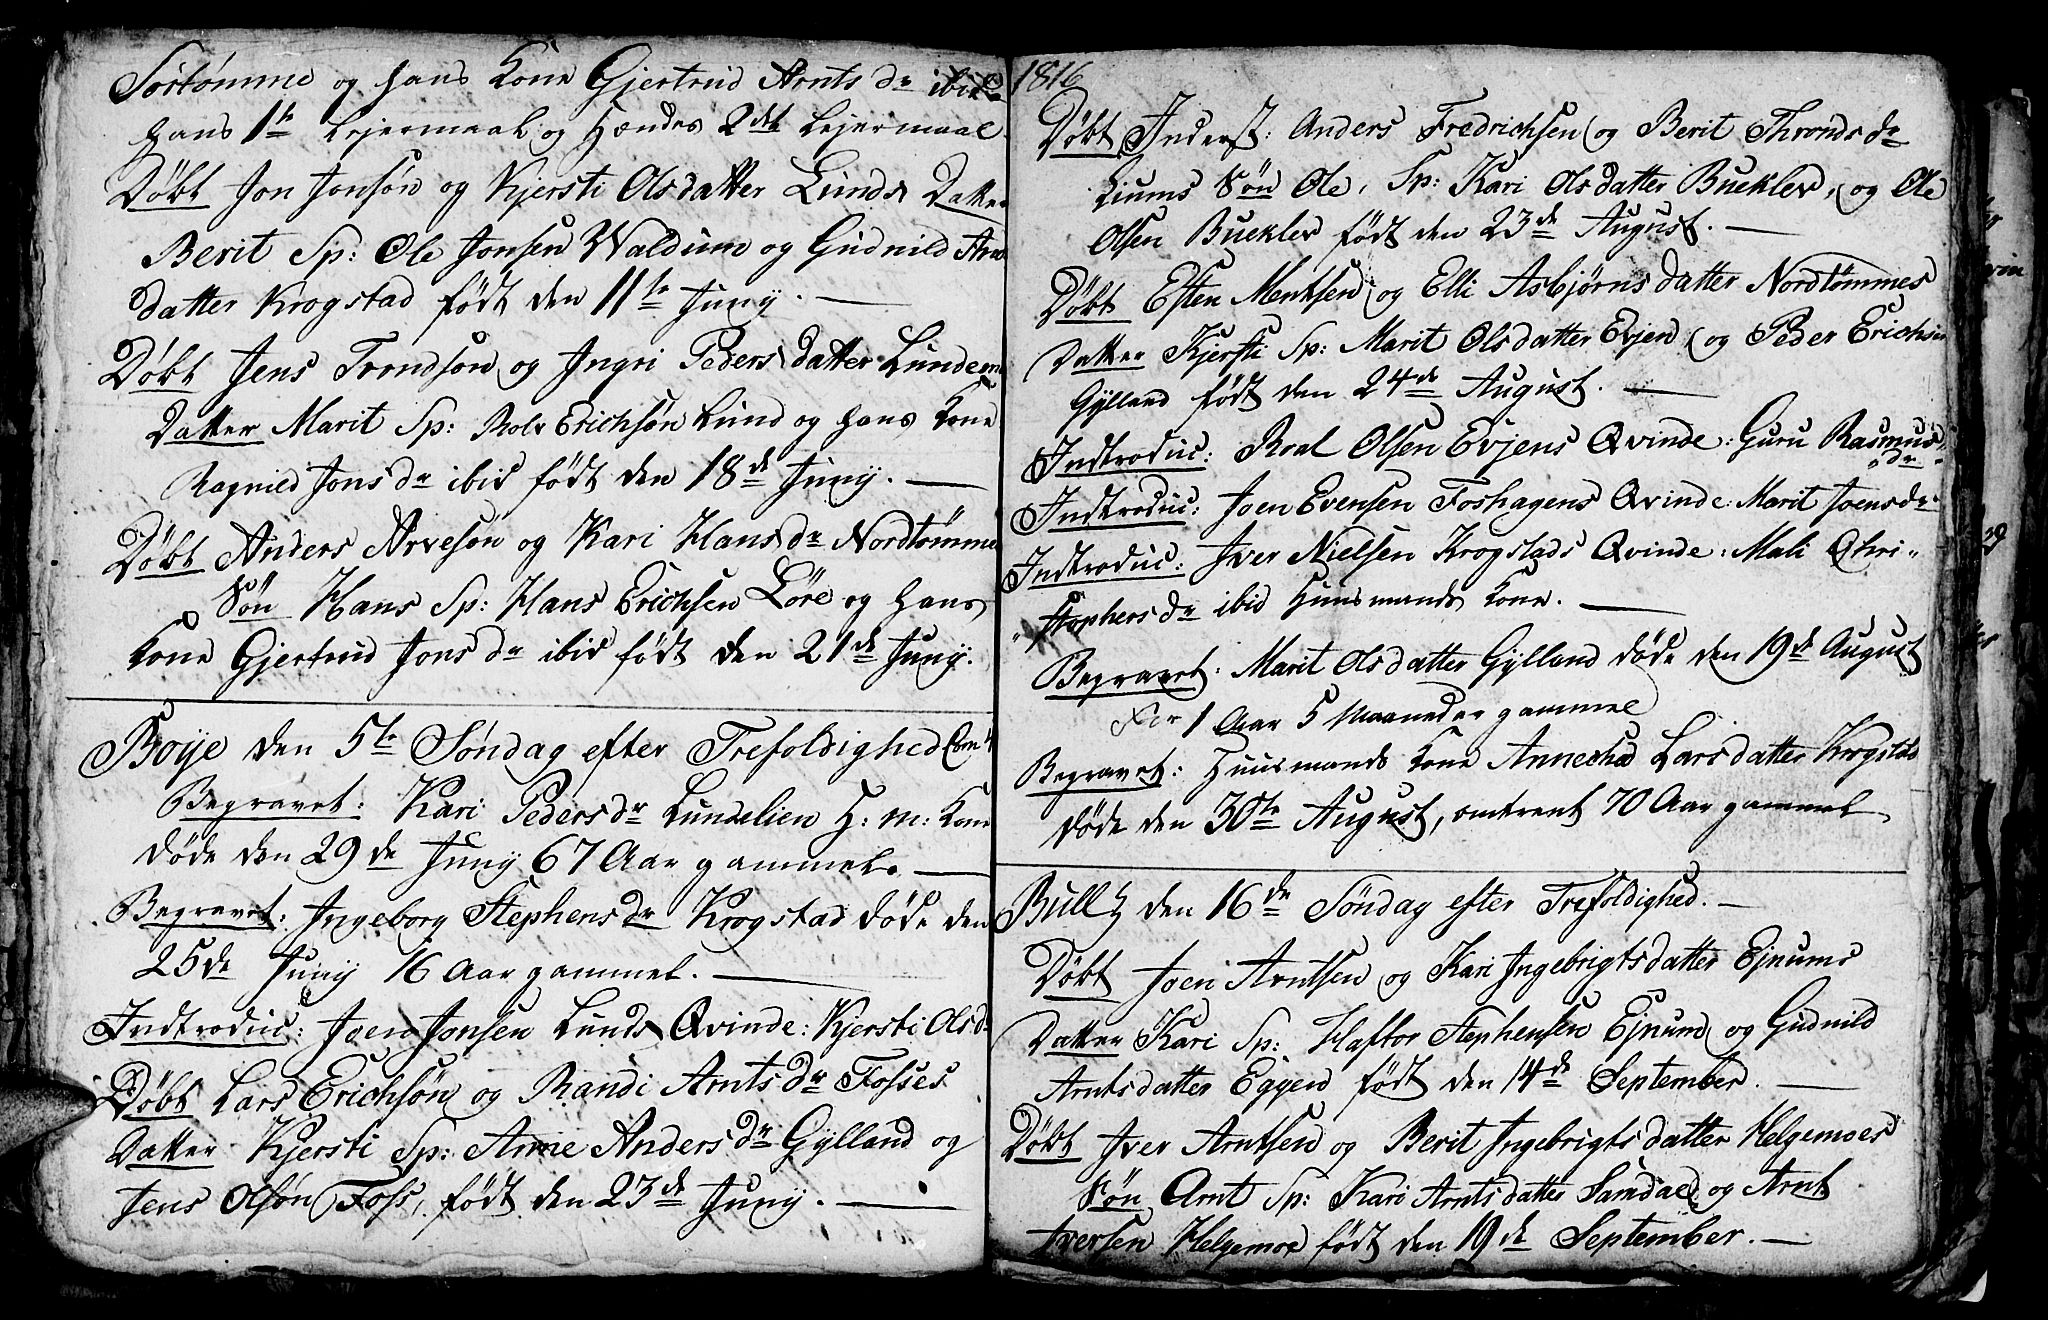 Sørtømme og hans Kone Gjertrud Arnts dr ibid
hans 1te Lejermaal og Hændes 2det Lejermaal
Døbt Jon Jonsøn og Kjersti Olsdatter Lunds Datter
Berit Sp: Ole Jonsen Waldum og Gudnild
datter Krogstad født den 11te Juny. —
Døbt Jens Trondsøn og Ingri Peders datter
Datter Marit Sp: Rolv Erichsøn Lund og hans Kone
Ragnild Jons dr ibid født den 18de Juny. —
Døbt Anders Arvesøn og Kari Hans dr Nordtømme
Søn Hans Sp: Hans Erichsen Løre og hans
Kone Gjertrud Jons dr ibid født den 21de Juny.
Boye den 5te Søndag efter Trefoldighed
Begravet: Kari Peders dr Lundelien H: M: Kone
døde den 29de Juny 67 Aar gammel. —
Begravet: Ingeborg Stephens dr Krogstad døde den
25de Juny 16 Aar gammel. —
Indtroduc: Joen Jonsen Lunds Qvinde: Kjersti Olsd
Døbt Lars Erichsøn og Randi Arnts dr Fosses
Datter Kjersti Sp: Anne Anders dr Gylland og
Jens Olsøn Foss, født den 23de Juny. —
1816
Døbt Inderst: Anders Fredrichsen og Berit Thronds dr
Liums Søn Ole, Sp: Kari Olsdatter Bueklev, og Ole
Olsen Bueklev født den 23de August. —
Døbt Esten Mentsen og Elli Asbjørns datter Nordtømmes
Datter Kjersti Sp: Marit Olsdatter Evjen og Peder Erichsen
Gylland født den 24de August. —
Indtroduc: Roal Olsen Evjens Qvinde: Guru Rasmus
dr
Indtroduc: Joen Evensen Foshagens Qvinde: Marit Joensdr
Indtroduc: Iver Nielsen Krogstads Qvinde: Mali Chri„
„stophers dr ibid Huusmands Kone. —
Begravet: Marit Olsdatter Gylland døde den 19de August
1 Aar 5 Maaneder gammel
Begravet: Huusmands Kone Annechæ Larsdatter Krogstad
døde den 30te August, omtrent 70 Aar gammel
Bull den 16de Søndag efter Trefoldighed. —
Døbt Joen Arntsen og Kari Ingebrigtsdatter Ejnums
Datter Kari Sp: Haftor Stephensen Ejnum og Gudnild
Arntsdatter Eggen født den 14de September. —
Døbt Iver Arntsen og Berit Ingebrigts datter Helgemoes
Søn Arnt Sp: Kari Arntsdatter Samdael og Arnt
Iversen Helgemoe født den 19de September. —